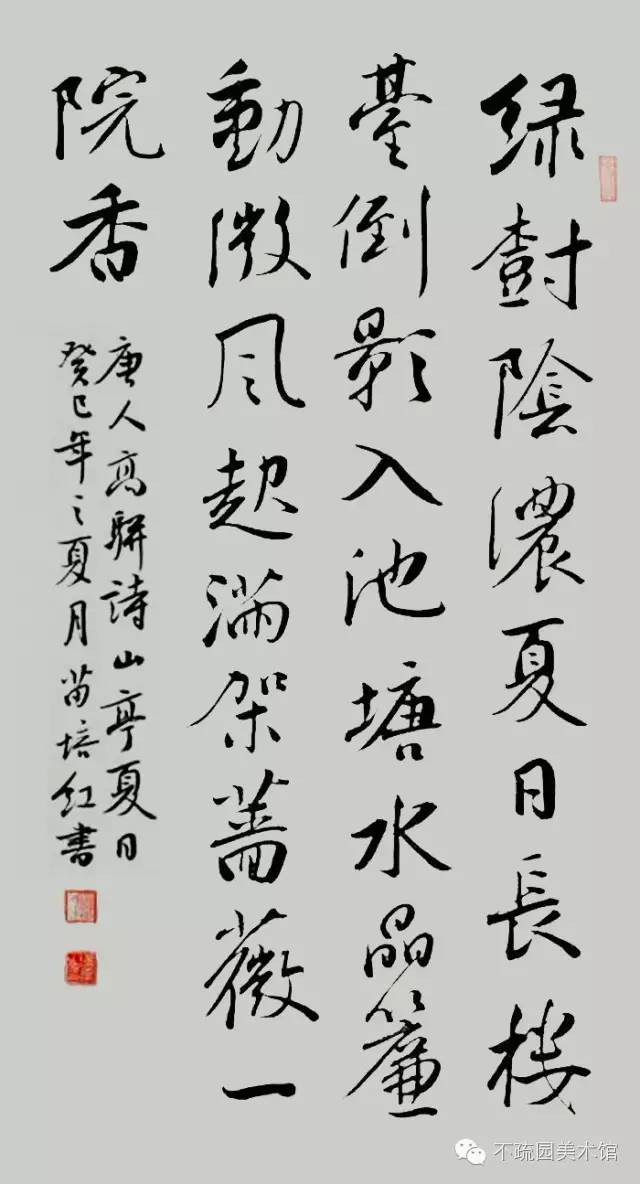 绿樹陰濃夏日長樓
臺倒影入池塘水晶簾
動微風起滿架薔薇一
院香
唐人高駢詩山亭夏日
癸巳年之夏月苗培红書
不疏园美术馆